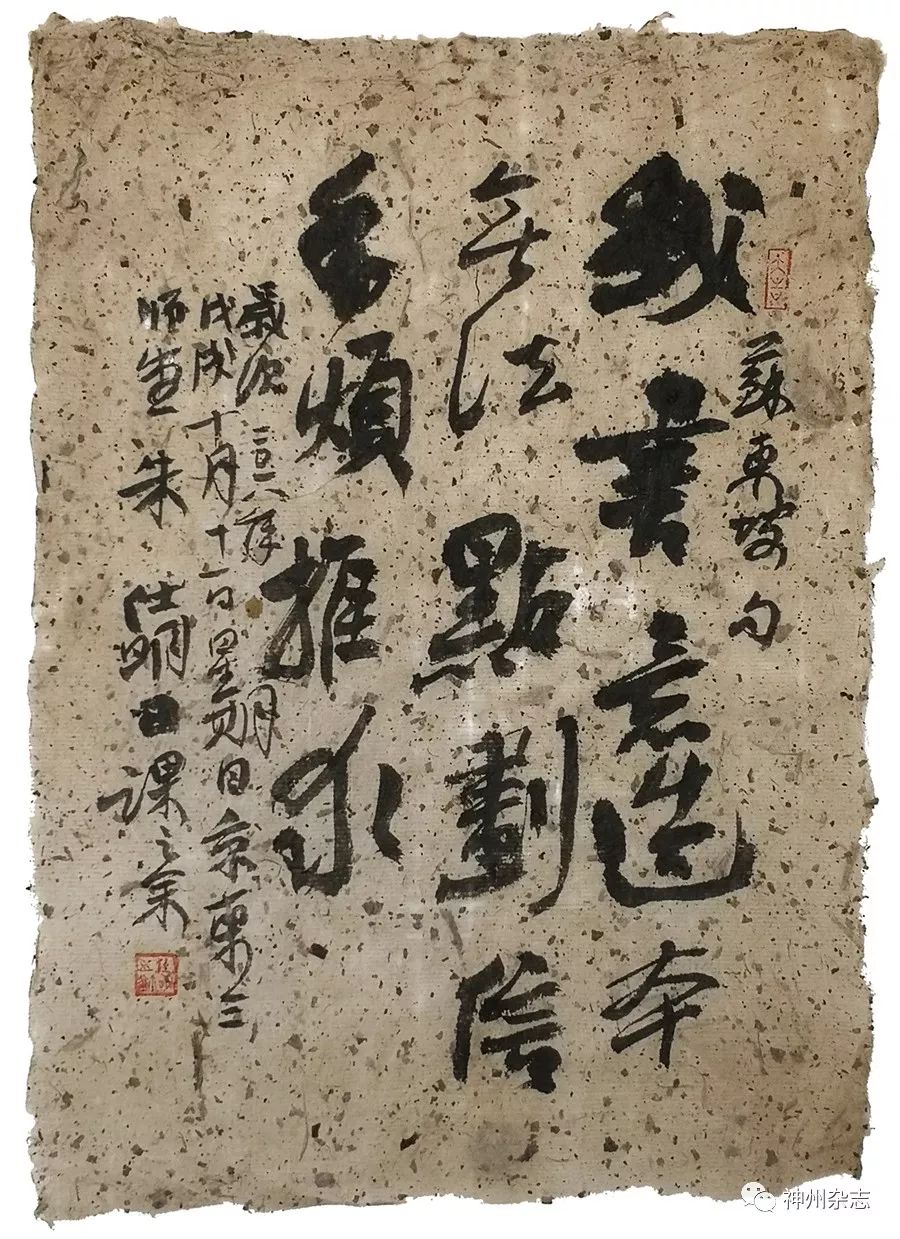 蘇東坡句
我書意造本
無法點劃信
手煩推求
歲次二〇一八年
戊戌十月十一日星期日京東三
师朱仕明日課之余
神州杂志